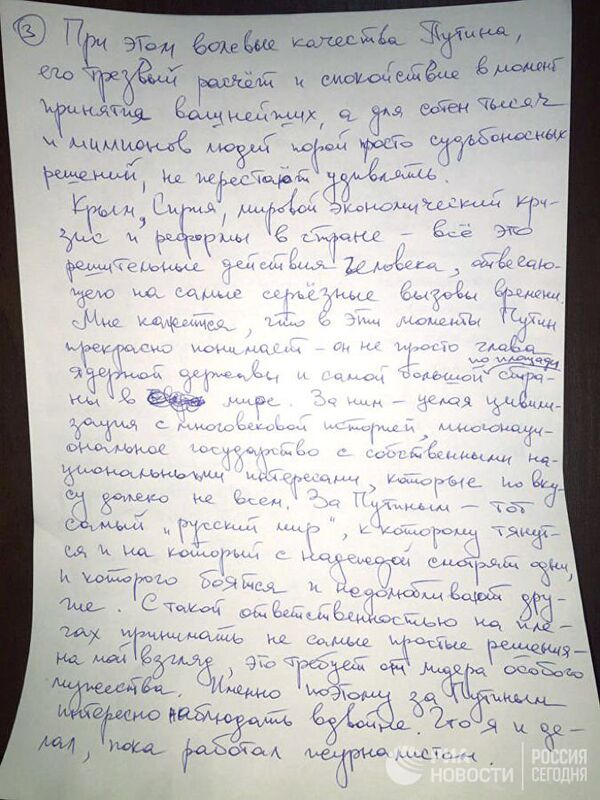 3 При этом волевые качества Путина,
его трезвый расчёт и спокойствие в момент
принятия важнейших, а для сотен тысяч
и миллионов людей порой просто судьбоносных
решений, не перестают удивлять.
Крым, Сирия, мировой экономический кри-
зис и реформы в стране – всё это
решительные действия человека, отвечаю-
щего на самые серьёзные вызовы времени.
Мне кажется, что в эти моменты Путин
прекрасно понимает – он не просто глава
ядерной державы и самой большой по площади стра-
ны в мире. За ним – целая цивили-
зация с многовековой историей, многонаци-
ональное государство с собственными на-
циональными интересами, которые по вку-
су далеко не всем. За Путиным – тот
самый "русский мир", к которому тянут-
ся и на который с надеждой смотрят одни,
и которого боятся и недолюбливают дру-
гие. С такой ответственностью на пле-
чах принимать не самые простые решения –
на мой взгляд, это требует от лидера особого
мужества. Именно поэтому за Путиным
интересно наблюдать вдвойне. Что я и де-
лал, пока работал журналистом.
РИА НОВОСТИ
РОССИЯ СЕГОДНЯ